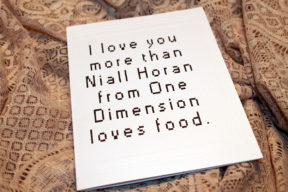 I love you
more than
Niall Horan
from One
Dimension
loves food.